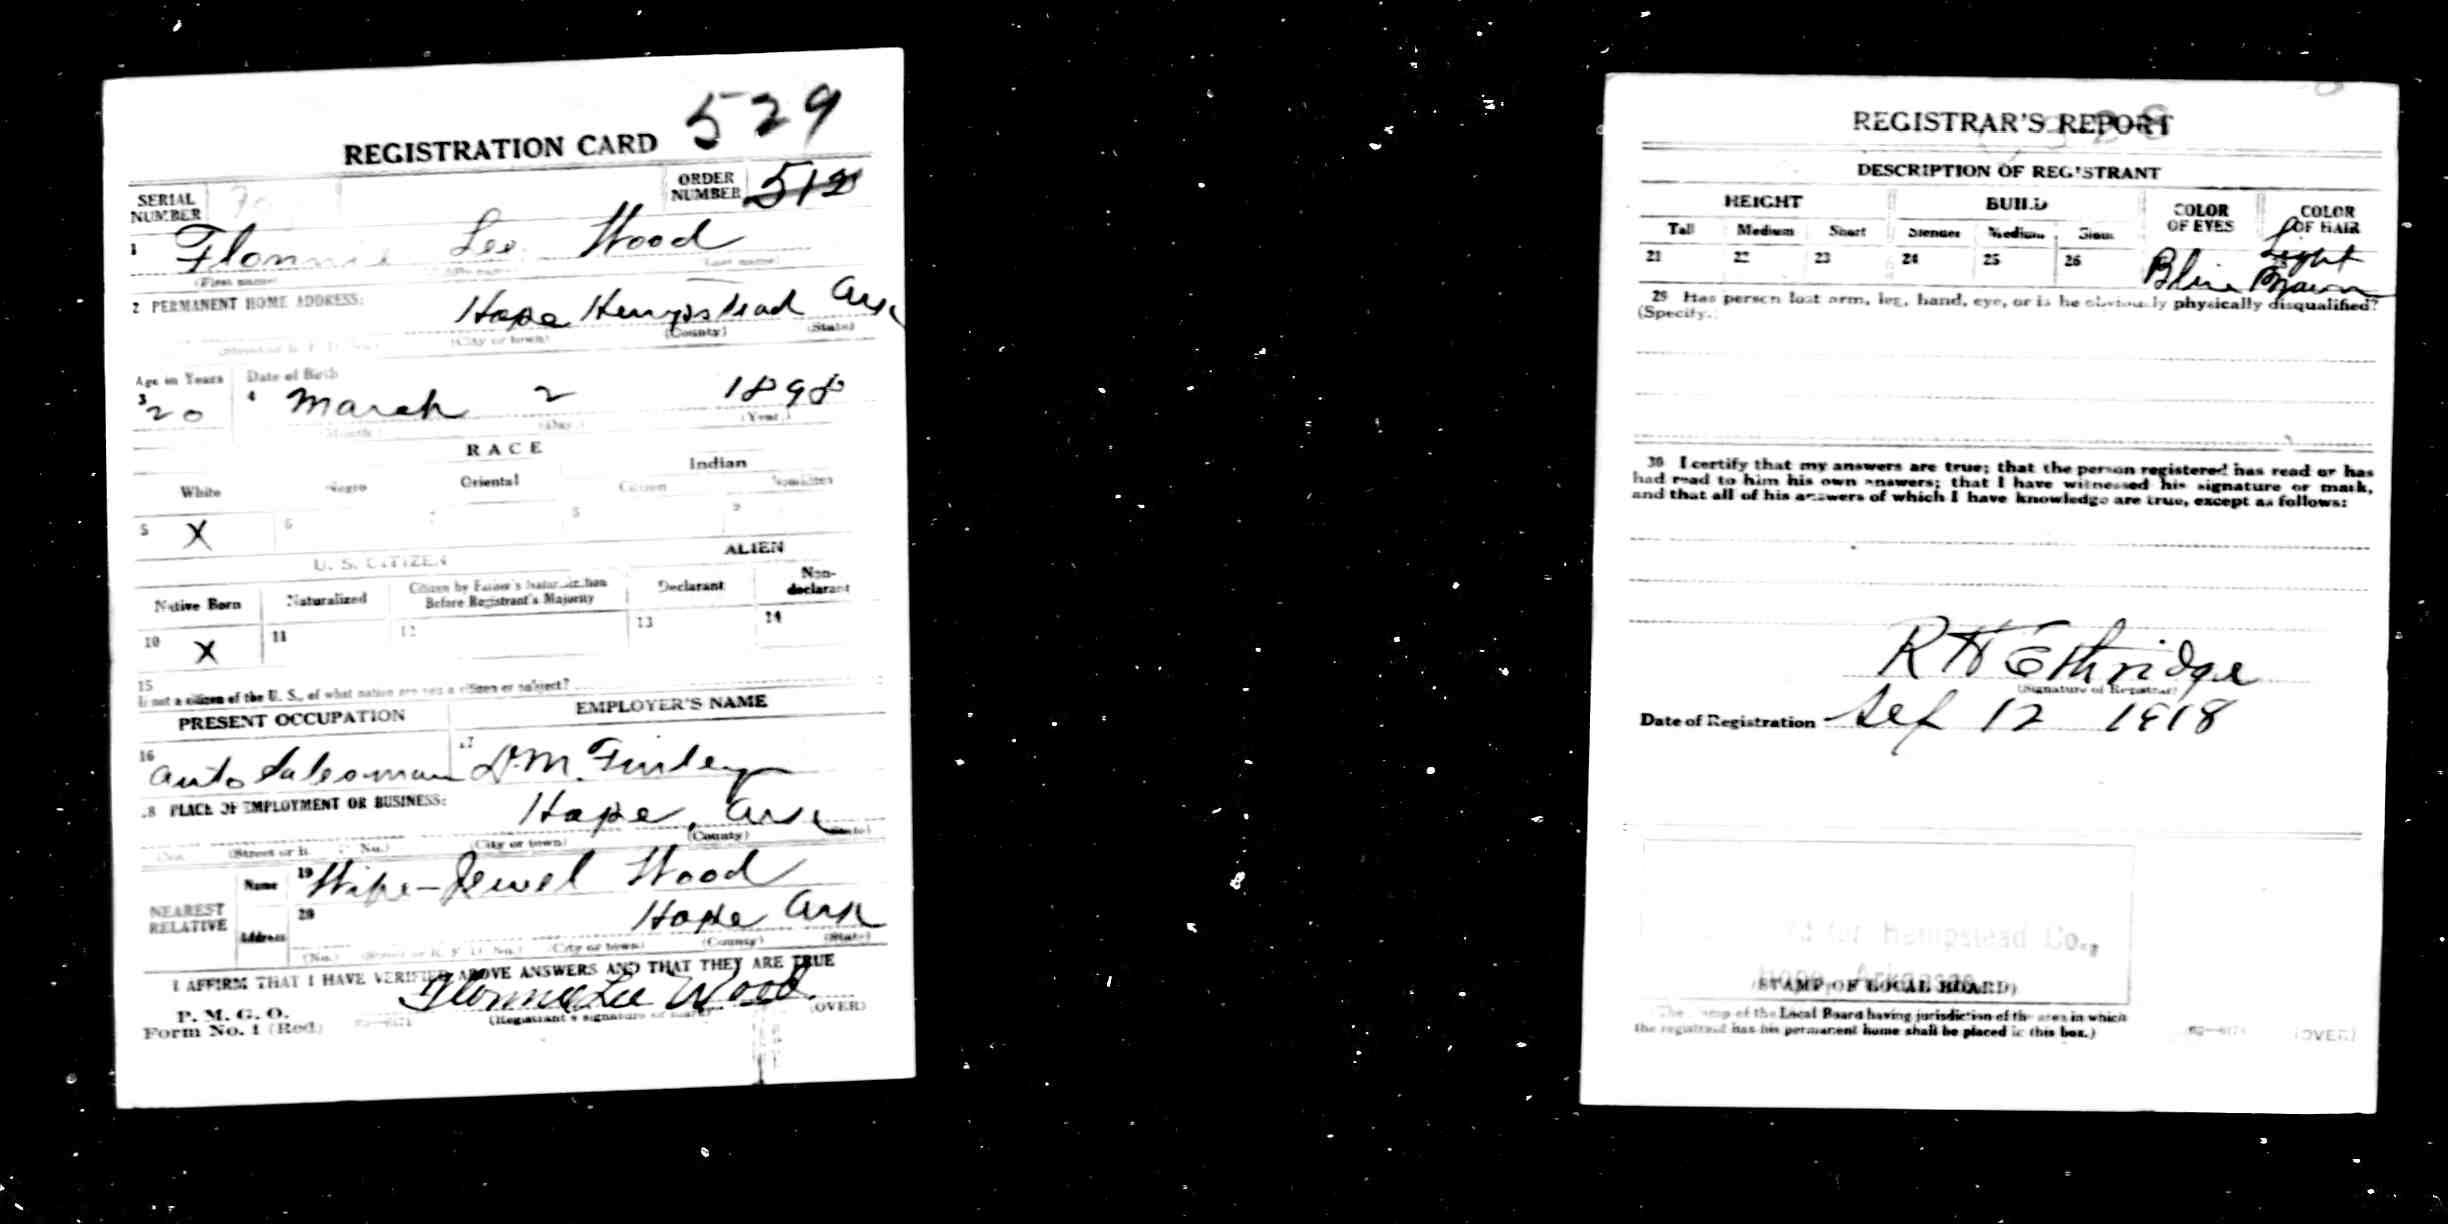 529
REGISTRATION CARD
SERIAL NUMBER
ORDER NUMBER 512
1 Flonnie Lee Wood
(First name) (Last name)
2 PERMANENT HOME ADDRESS:
Hope Hempstead Ark
(City or town) (County) (State)
Age in Years Date of Birth
3 20 4 March 2 1898
(Month) (Day) (Year)
RACE
White Negro Oriental Indian
Citizen Noncitizen
5 X 6 8 9
U. S. CITIZEN ALIEN
Native Born Naturalized Citizen by Father's Naturalization Before Registrant's Majority Declarant Non-declarant
10 X 11 12 13 14
15
If not a citizen of the U. S., of what nation are you a citizen or subject?
PRESENT OCCUPATION EMPLOYER'S NAME
16 Auto Salesman 17 D.M. Finley
18 PLACE OF EMPLOYMENT OR BUSINESS:
Hope, Ark
(No.) (Street or R. F. D. No.) (City or town) (County) (State)
NEAREST RELATIVE
Name 19 Wife-Jewel Wood
Address 20 Hope Ark
(No.) (Street or R. F. D. No.) (City or town) (County) (State)
I AFFIRM THAT I HAVE VERIFIED ABOVE ANSWERS AND THAT THEY ARE TRUE
P. M. G. O.
Form No. 1 (Red)
Flonnie Lee Wood
(Registrant's signature or mark)
(OVER)
REGISTRAR'S REPORT
DESCRIPTION OF REGISTRANT
HEIGHT BUILD COLOR OF EYES COLOR OF HAIR
Tall Medium Short Slender Medium Stout
21 22 23 24 25 26 Blue Light Brown
29 Has person lost arm, leg, hand, eye, or is he obviously physically disqualified?
(Specify.)
30 I certify that my answers are true; that the person registered has read or has
had read to him his own answers; that I have witnessed his signature or mark,
and that all of his answers of which I have knowledge are true, except as follows:
R H Ethridge
(Signature of Registrar)
Date of Registration Sep 12 1918
for Hempstead Co.,
Hope, Arkansas
(STAMP OF LOCAL BOARD)
(The stamp of the Local Board having jurisdiction of the area in which
the registrant has his permanent home shall be placed in this box.)
(OVER)